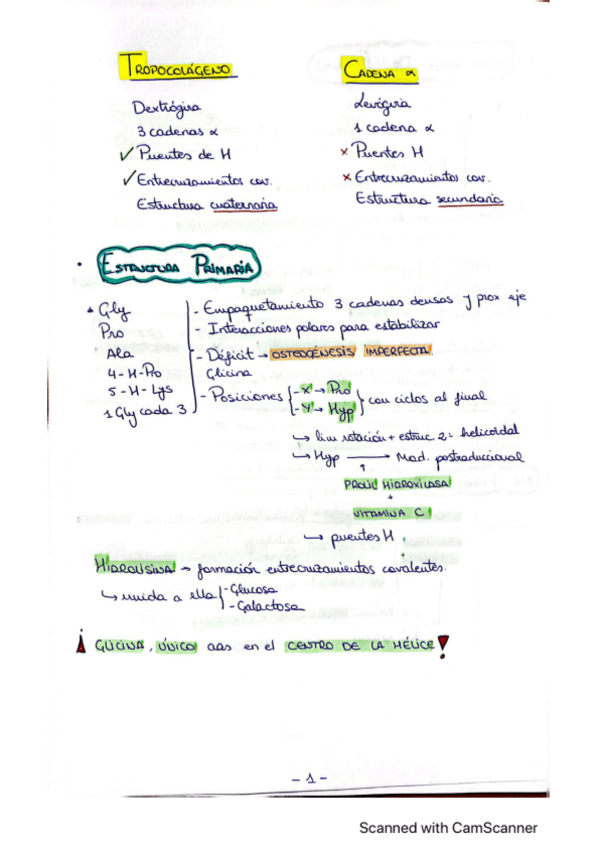 TROPOCOLÁGENO
Dextrógira
3 cadenas α
✓ Puentes de H
✓ Entrecruzamientos cov.
Estructura cuaternaria
CADENA α
Levógira
1 cadena α
x Puentes H
x Entrecruzamientos cov.
Estructura secundaria
• ESTRUCTURA PRIMARIA
* Gly
Pro
Ala
4-H-Pro
5-H-Lys
1 Gly cada 3
- Empaquetamiento 3 cadenas densas y prox eje
- Interacciones polares para estabilizar
- Déficit → OSTEOGÉNESIS IMPERFECTA
Glicina
- Posiciones
- X → Pro
- Y → Hyp
con ciclos al final
↳ lim rotación + estruc. 2ª helicoidal
↳ Hyp → Mod. postraduccional
↑
PROLIL HIDROXILASA
+
VITAMINA C
↳ puentes H
HIDROLISINA → formación entrecruzamientos covalentes.
↳ unida a ella
- Glucosa
- Galactosa
¡GLICINA, ÚNICO aas en el CENTRO DE LA HÉLICE!
- 1 -
Scanned with CamScanner